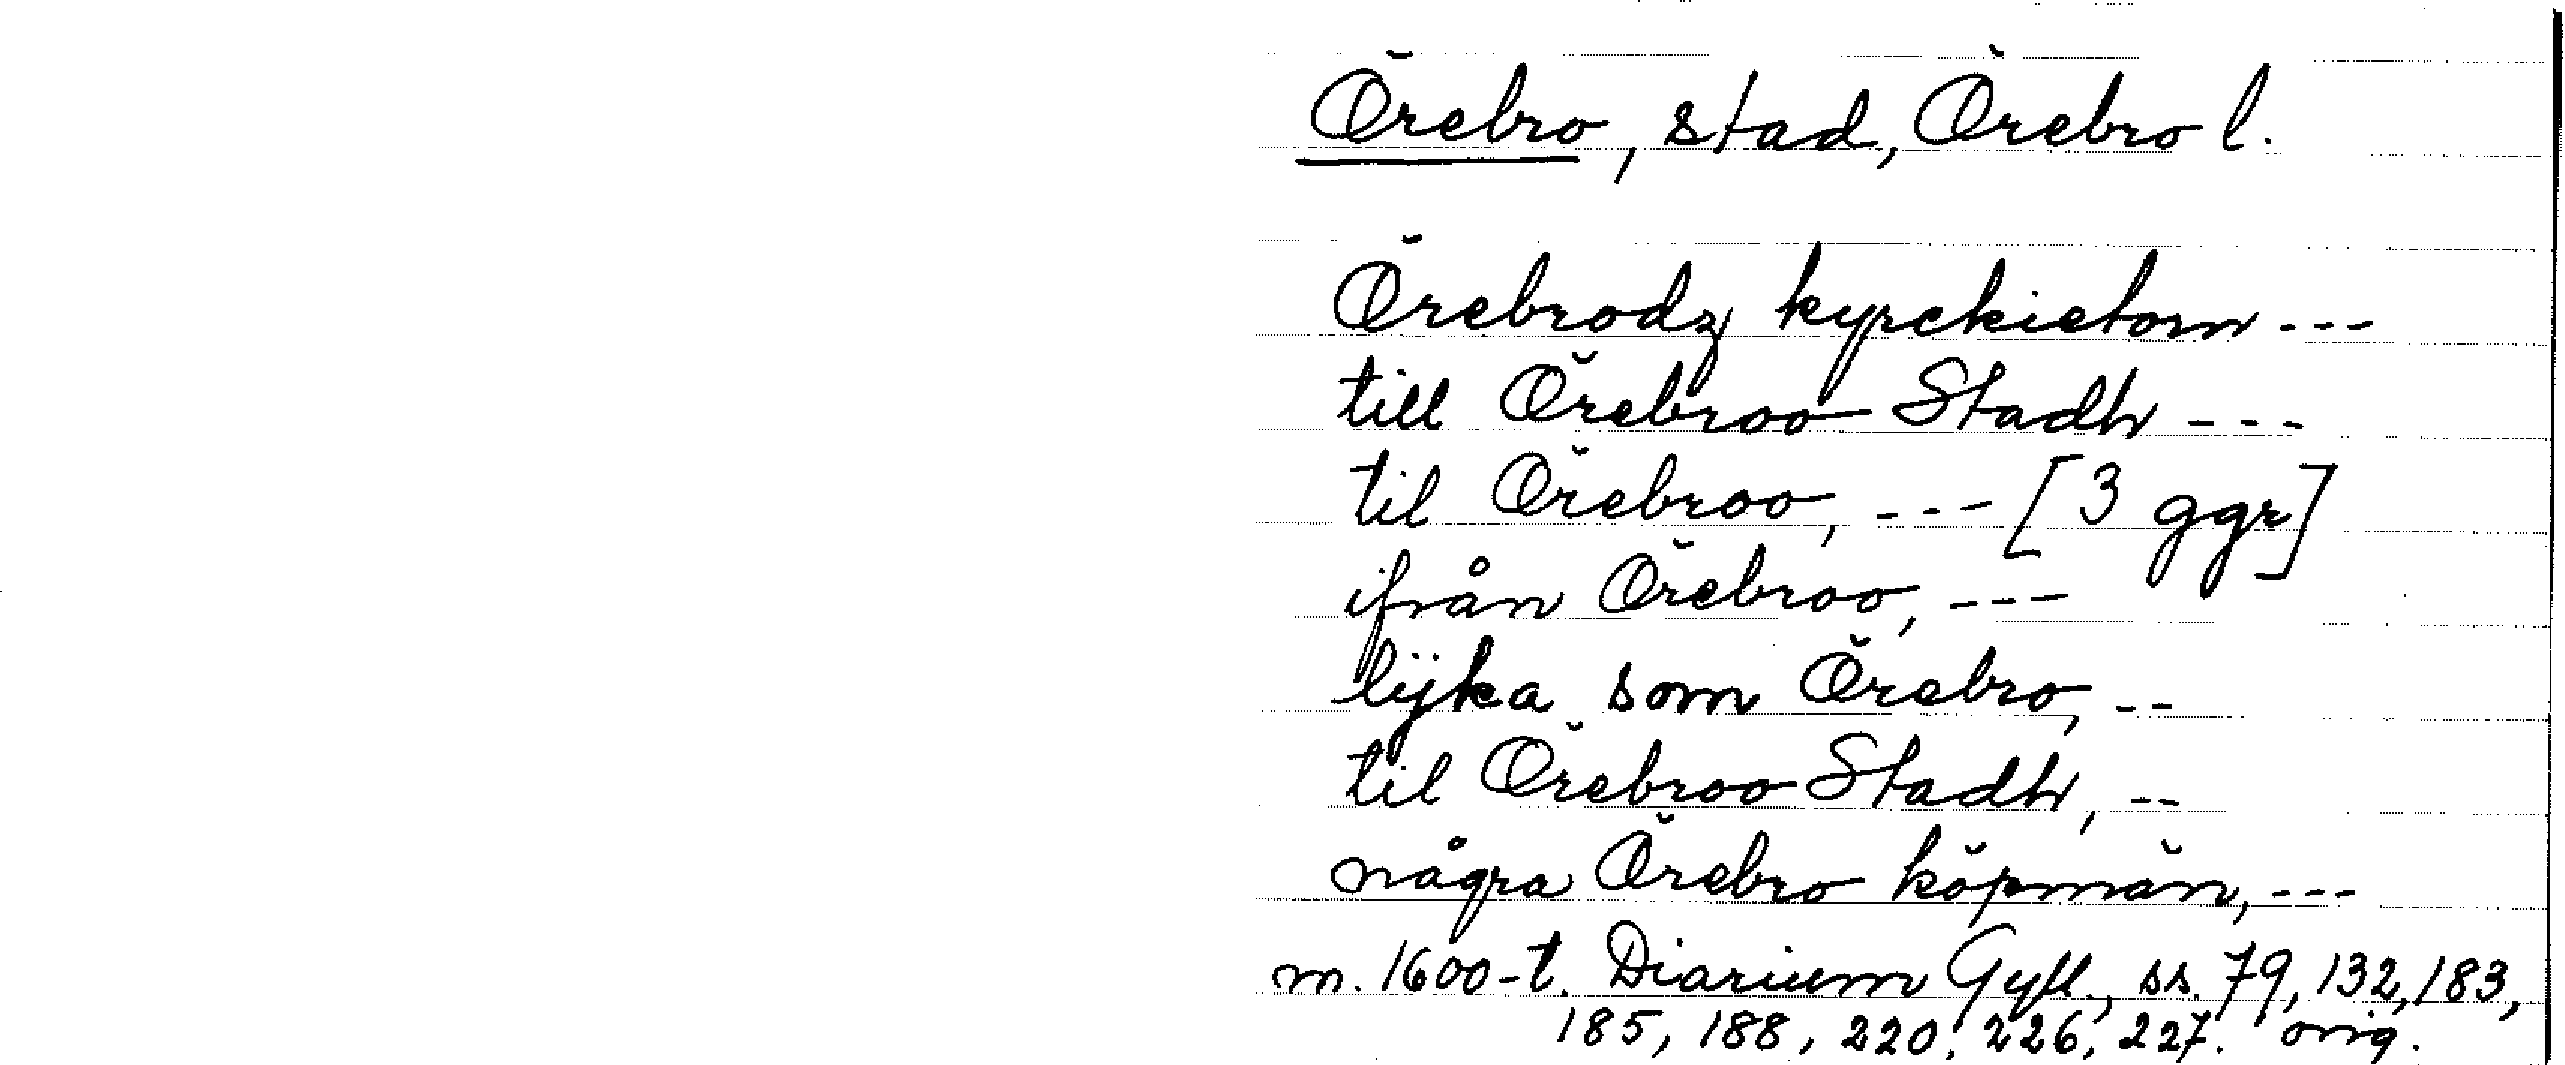 Örebro, stad, Örebro l.
Örebrodz kyrckietorn ---
till Örebroo Stadh ---
til Örebroo, --- [3 ggr]
ifrån Örebroo, ---
lÿka som Örebro, --
til Örebroo Stadh, --
några Örebro köpmän, ---
m. 1600-t. Diarium Gyll., ss. 79, 132, 183,
185, 188, 220, 226, 227. orig.